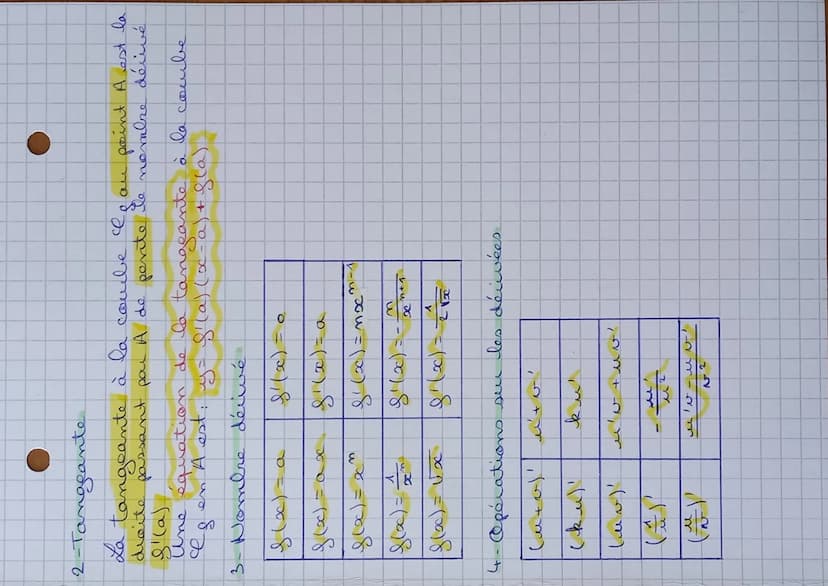 2-Tangeante
La tangeante à la courbe Cf au point A est la
droite passant par A de pente le nombre dérivé
f'(a)
Une équation de la tangeante à la courbe
Cf en A est: y = f'(a)(x-a) + f(a)
3- Nombre dérivé
f(x)=a f'(x)=0
f(x)=ax f'(x)=a
f(x)=x^n f'(x)=nx^(n-1)
f(x)=1/x^n f'(x)=-n/x^(n+1)
f(x)=√x f'(x)=1/(2√x)
4-Opérations sur les dérivées
(u+v)' u'+v'
(ku)' ku'
(uv)' u'v+uv'
(1/u)' -u'/u²
(u/v)' (u'v-uv')/v²